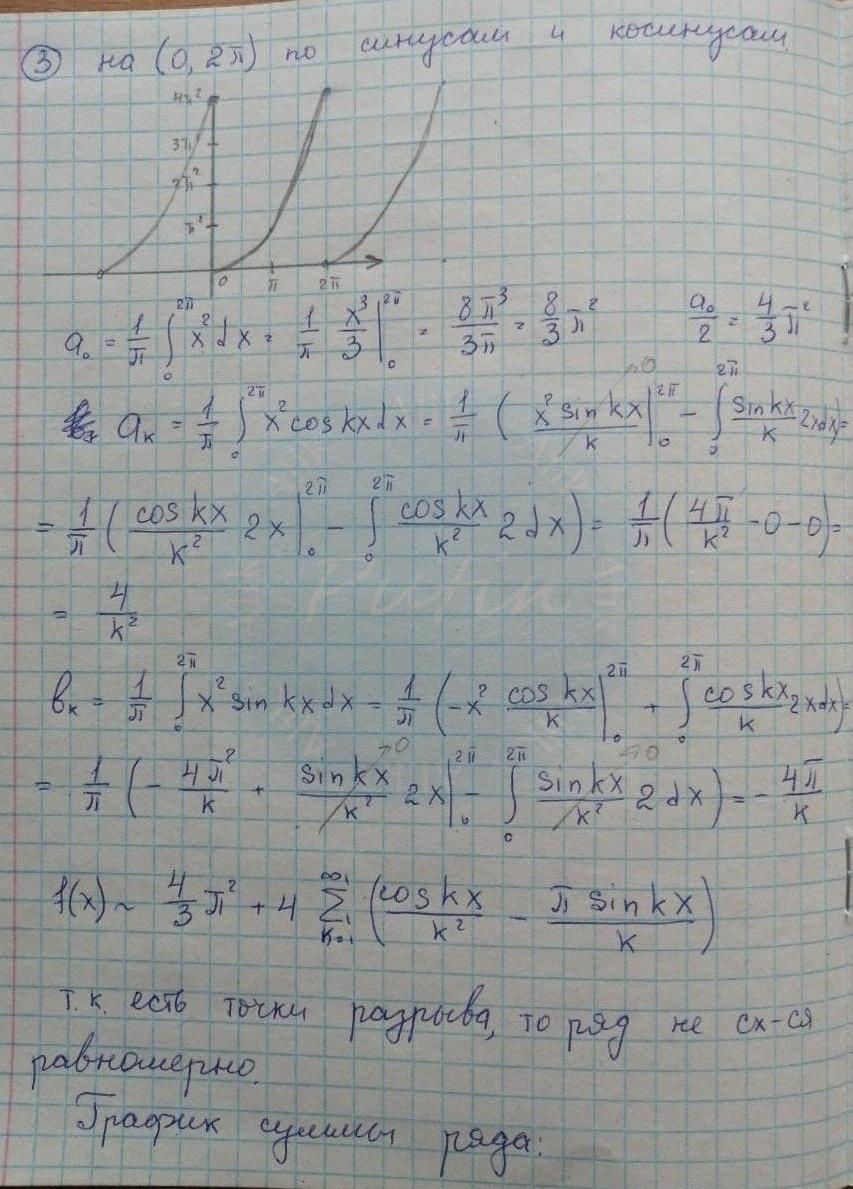 ③ на (0, 2π) по синусам и косинусам
4π²
3π²
2π²
π²
0 π 2π
a₀ = 1/π ∫₀^{2π} x² dx = 1/π x³/3 |₀^{2π} = 8π³/3π = 8/3 π² a₀/2 = 4/3 π²
aₖ = 1/π ∫₀^{2π} x² cos kx dx = 1/π ( x² sin kx/k |₀^{2π} →0 − ∫₀^{2π} sin kx/k 2x dx) =
= 1/π ( cos kx/k² 2x |₀^{2π} − ∫₀^{2π} cos kx/k² 2 dx) = 1/π ( 4π/k² − 0 − 0) =
= 4/k²
bₖ = 1/π ∫₀^{2π} x² sin kx dx = 1/π (−x² cos kx/k |₀^{2π} + ∫₀^{2π} cos kx/k 2x dx) =
= 1/π (− 4π²/k + sin kx/k² 2x |₀^{2π} →0 − ∫₀^{2π} sin kx/k² 2 dx →0) = − 4π/k
f(x) ~ 4/3 π² + 4 ∑_{k=1}^{∞} (cos kx/k² − π sin kx/k)
т.к. есть точки разрыва, то ряд не сх-ся
равномерно.
График суммы ряда: